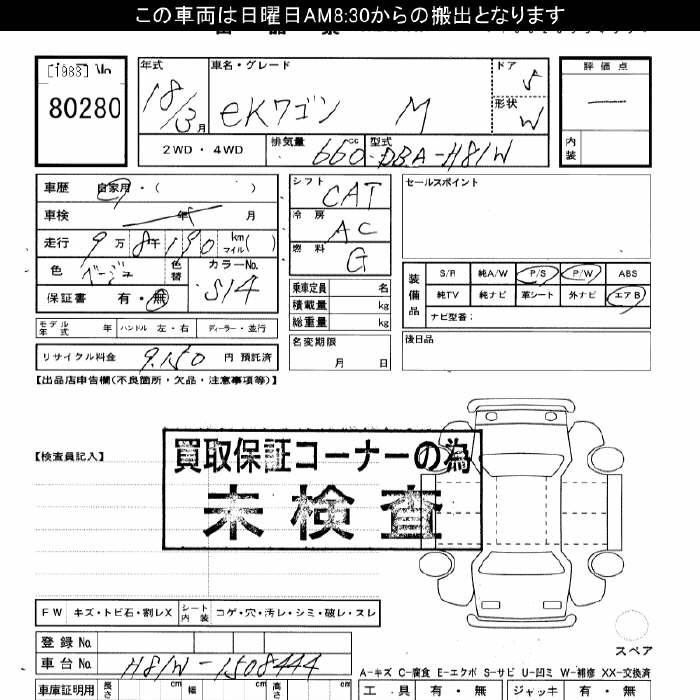 この車両は日曜日AM8:30からの搬出となります
[1983]
80280
年式 車名・グレード ドア 評価点
18/3月 eKワゴン M 5
形状 W
2WD・4WD 排気量 660cc 型式 DBA-H81W 内装
車歴 自家用・( ) シフト CAT セールスポイント
車検 年 月 冷房 AC
走行 9万8千190 km マイル( ) 燃料 G
色 ベージュ 色替 カラーNo. S14
保証書 有・無
乗車定員 名
積載量 kg
総重量 kg
装備品 S/R 純A/W P/S P/W ABS
純TV 純ナビ 革シート 外ナビ エアB
ナビ型番:
モデル年式 年 ハンドル 左・右 ディーラー・並行
名変期限 月 日
後日品
リサイクル料金 9,150 円 預託済
【出品店申告欄(不良箇所・欠品・注意事項等)】
【検査員記入】
買取保証コーナーの為
未検査
FW キズ・トビ石・割レX シート内装 コゲ・穴・汚レ・シミ・破レ・スレ
登録No
車台No H81W-1508444
スペア
A-キズ C-腐食 E-エクボ S-サビ U-凹ミ W-補修 XX-交換済
車庫証明用 長さ cm 幅 cm 高さ cm
工具 有・無 ジャッキ 有・無